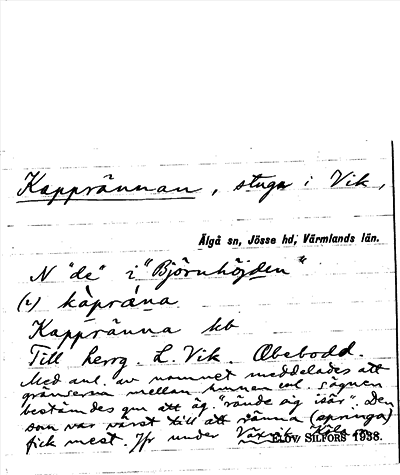 Kapprännan, stuga i Vik,
Älgå sn, Jösse hd, Värmlands län.
N "de" i "Björnhöjden"
(2) kàpräna
Kappränna kb
Till herrg. L. Vik. Obebodd.
Med anl. av namnet meddelades att
gränserna mellan hemman enl. sägnen
bestämdes gm att äg. "rände äg isär". Den
som var värst till att ränna (springa)
fick mest. Jfr under Växvik, Köla
ELOV SILFORS 1938.